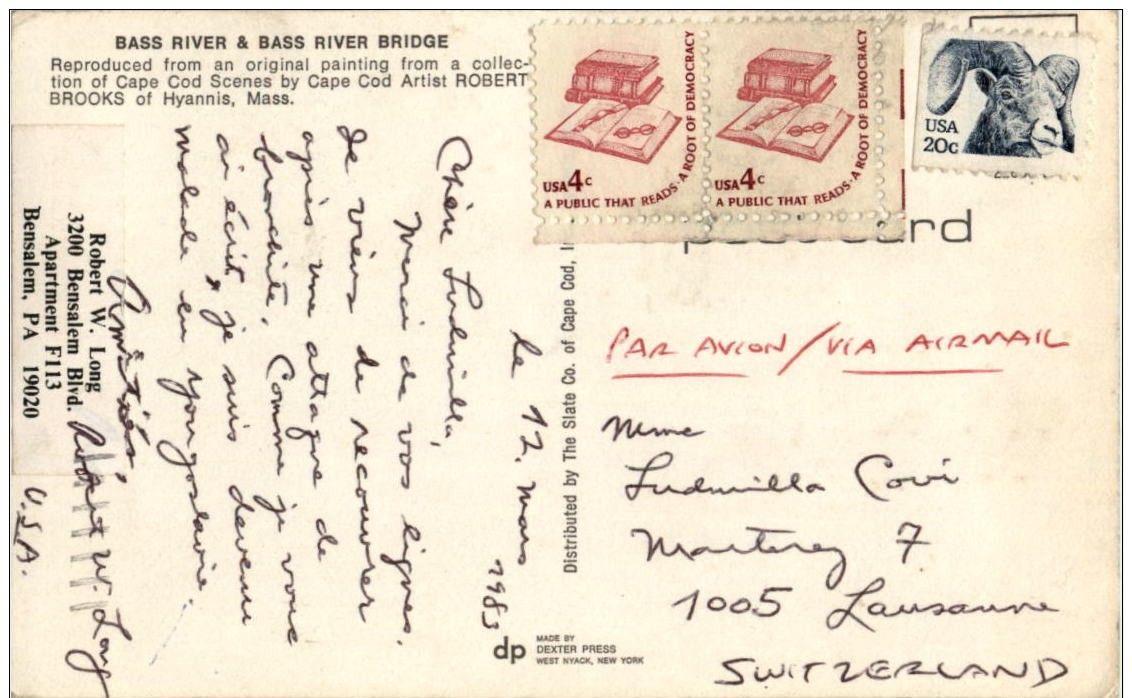 BASS RIVER & BASS RIVER BRIDGE
Reproduced from an original painting from a collec-
tion of Cape Cod Scenes by Cape Cod Artist ROBERT
BROOKS of Hyannis, Mass.
USA 4c
A PUBLIC THAT READS · A ROOT OF DEMOCRACY
USA 4c
A PUBLIC THAT READS · A ROOT OF DEMOCRACY
USA
20c
le 12. mars 1983
Chère Ludmilla,
Merci de vos lignes.
Je viens de recouvrer
après une attaque de
bronchite. Comme je vous
ai écrit, je suis devenu
malade en Yougoslavie.
Amitiés
Robert W. Long
Robert W. Long
3200 Bensalem Blvd.
Apartment F113
Bensalem, PA 19020
U.S.A.
Distributed by The Slate Co. of Cape Cod,
PAR AVION / VIA AIRMAIL
Mme
Ludmilla Covi
Marterey 7
1005 Lausanne
SWITZERLAND
dp
MADE BY
DEXTER PRESS
WEST NYACK, NEW YORK